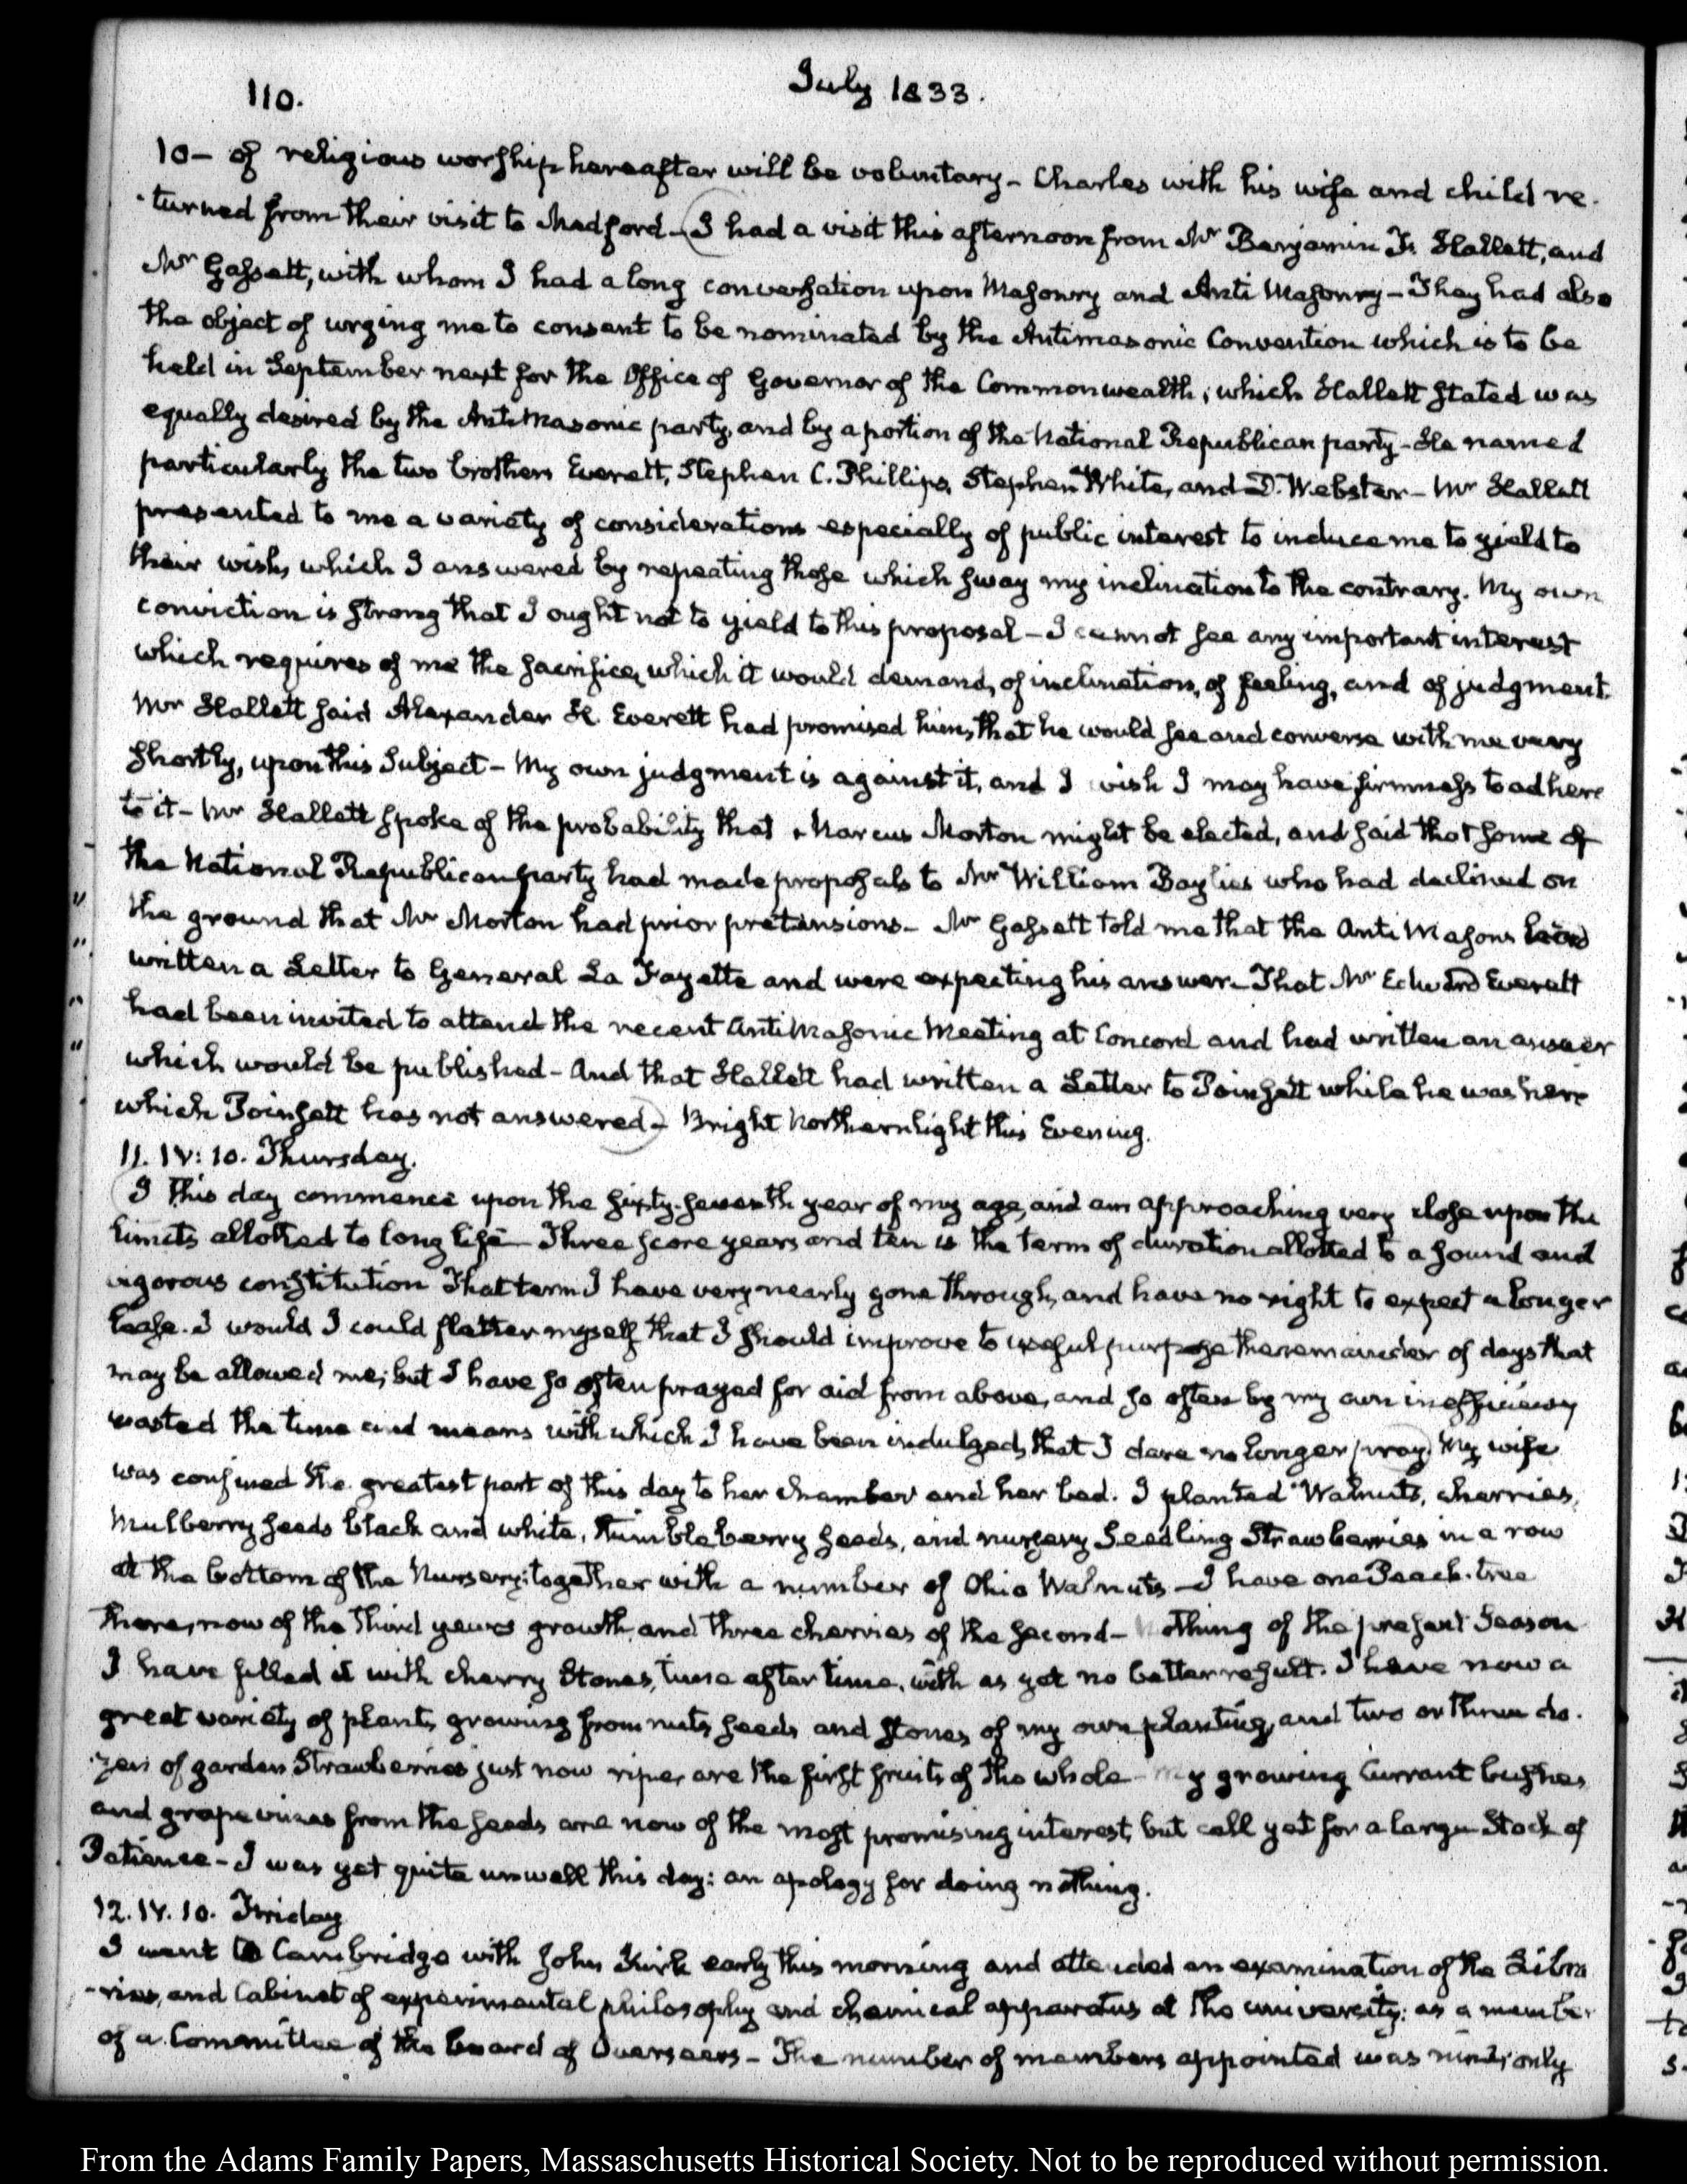 110.
July 1833.
10 — of religious worship hereafter will be voluntary — Charles with his wife and child re-
turned from their visit to Medford — I had a visit this afternoon from Mr Benjamin F. Hallett, and
Mr Gassett, with whom I had a long conversation upon Masonry and Anti Masonry — They had also
the object of urging me to consent to be nominated by the Antimasonic Convention which is to be
held in September next for the Office of Governor of the Commonwealth; which Hallett stated was
equally desired by the Anti Masonic party, and by a portion of the National Republican party — He named
particularly the two brothers Everett, Stephen C. Phillips, Stephen White, and D. Webster — Mr Hallett
presented to me a variety of considerations especially of public interest to induce me to yield to
their wish, which I answered by repeating those which sway my inclination to the contrary. My own
conviction is strong that I ought not to yield to this proposal — I cannot see any important interest
which requires of me the sacrifice, which it would demand, of inclination, of feeling, and of judgment.
Mr Hallett said Alexander H. Everett had promised him, that he would see and converse with me very
shortly, upon this Subject — My own judgment is against it, and I wish I may have firmness to adhere
to it — Mr Hallett spoke of the probability that Marcus Morton might be elected, and said that some of
the National Republican party had made proposals to Mr William Baylies who had declined on
the ground that Mr Morton had prior pretensions — Mr Gassett told me that the Anti Masons had
written a Letter to General La Fayette and were expecting his answer — That Mr Edward Everett
had been invited to attend the recent Anti Masonic Meeting at Concord and had written an answer
which would be published — And that Hallett had written a Letter to Poinsett while he was here
which Poinsett has not answered — Bright Northern light this Evening.
11. IV: 10. Thursday.
I this day commence upon the sixty-seventh year of my age, and am approaching very close upon the
limits allotted to long life — Three score years and ten is the term of duration allotted to a sound and
vigorous constitution That term I have very nearly gone through, and have no right to expect a longer
lease. I would I could flatter myself that I should improve to useful purpose the remainder of days that
may be allowed me; but I have so often prayed for aid from above, and so often by my own inefficiency
wasted the time and means with which I have been indulged, that I dare no longer pray. My wife
was confined the greatest part of this day to her chamber and her bed. I planted Walnuts, cherries,
Mulberry seeds black and white, thimbleberry seeds, and nursery Seedling Strawberries in a row
at the bottom of the Nursery: together with a number of Ohio Walnuts — I have one Peach-tree
there, now of the third years growth, and three cherries of the second — Nothing of the present Season
I have filled it with cherry Stones, time after time, with as yet no better result. I have now a
great variety of plants, growing from nuts, seeds and stones of my own planting, and two or three do-
zen of garden Strawberries just now ripe, are the first fruits of the whole — My growing Currant bushes
and grape vines from the seeds are now of the most promising interest, but call yet for a larger Stock of
Patience — I was yet quite unwell this day: an apology for doing nothing.
12. IV. 10. Friday
I went to Cambridge with John Kirk early this morning and attended an examination of the Libra-
-ries, and Cabinet of experimental philosophy and chemical apparatus at the university: as a member
of a Committee of the board of Overseers — The number of members appointed was nine; only
From the Adams Family Papers, Massaschusetts Historical Society. Not to be reproduced without permission.